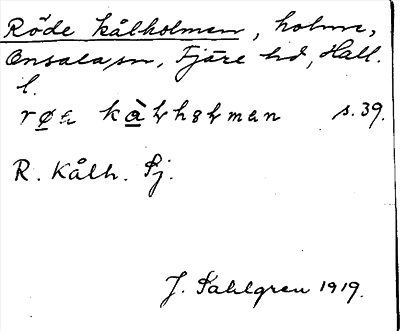 Röde kålholmen, holme,
Onsala sn, Fjäre hd, Hall.
l.
s. 39.
R. Kålh. Sj.
J. Sahlgren 1919.